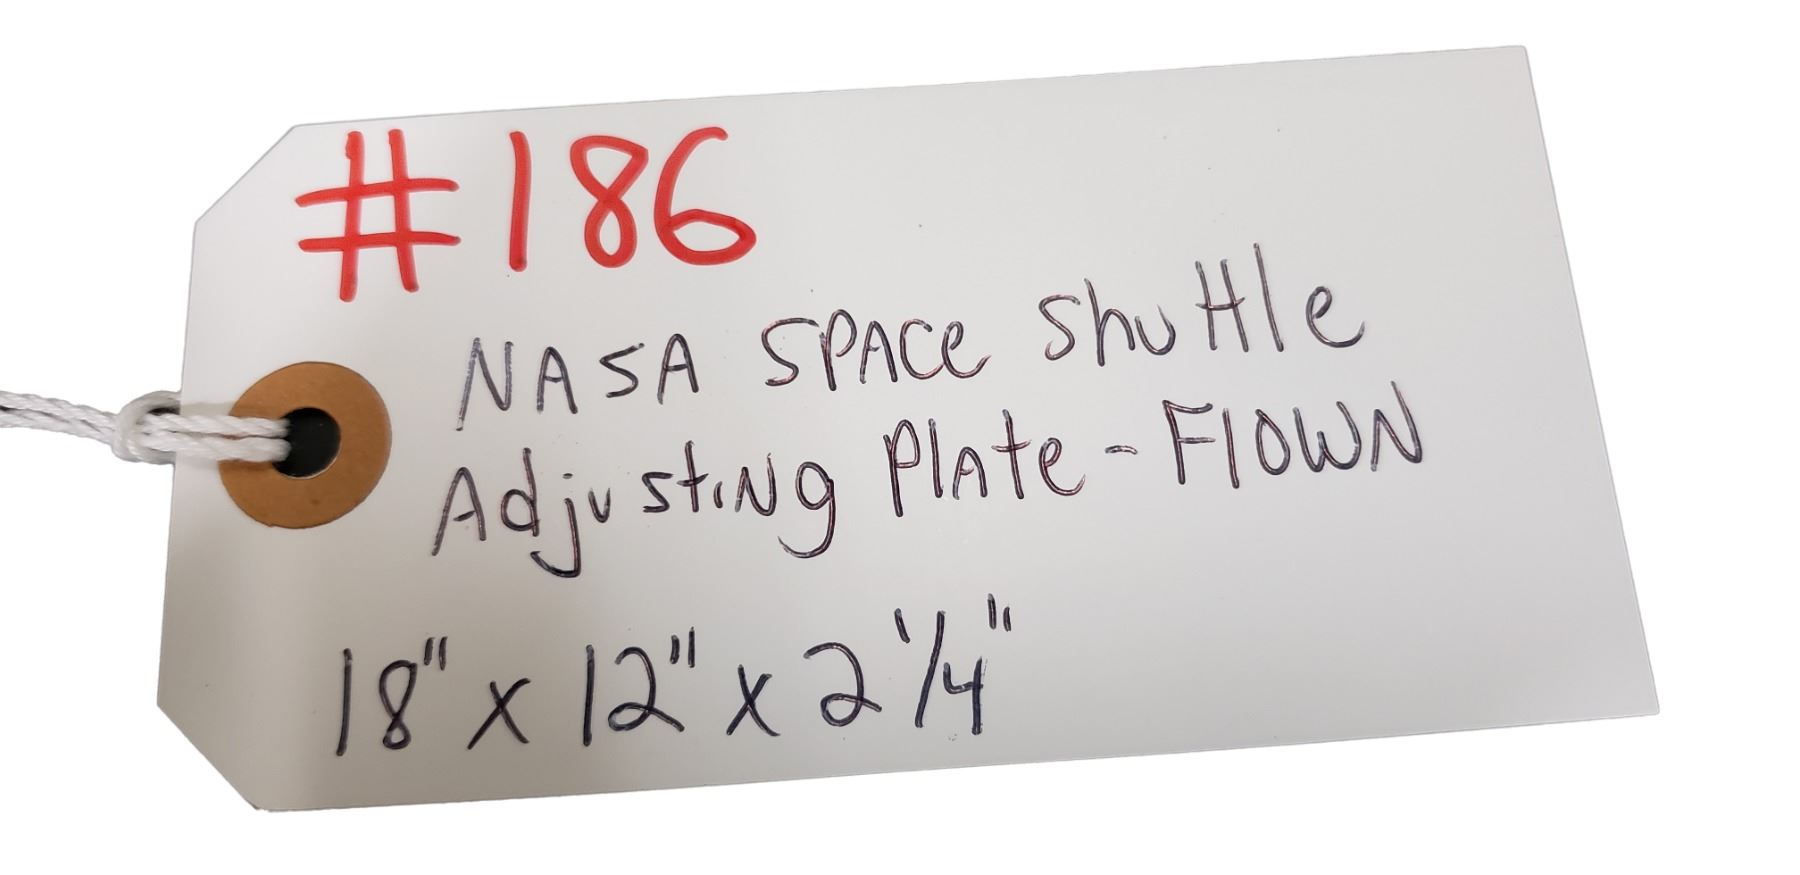 #186
NASA SPACe shuttle
Adjusting PlAte - FlOWN
18" x 12" x 2 1/4"